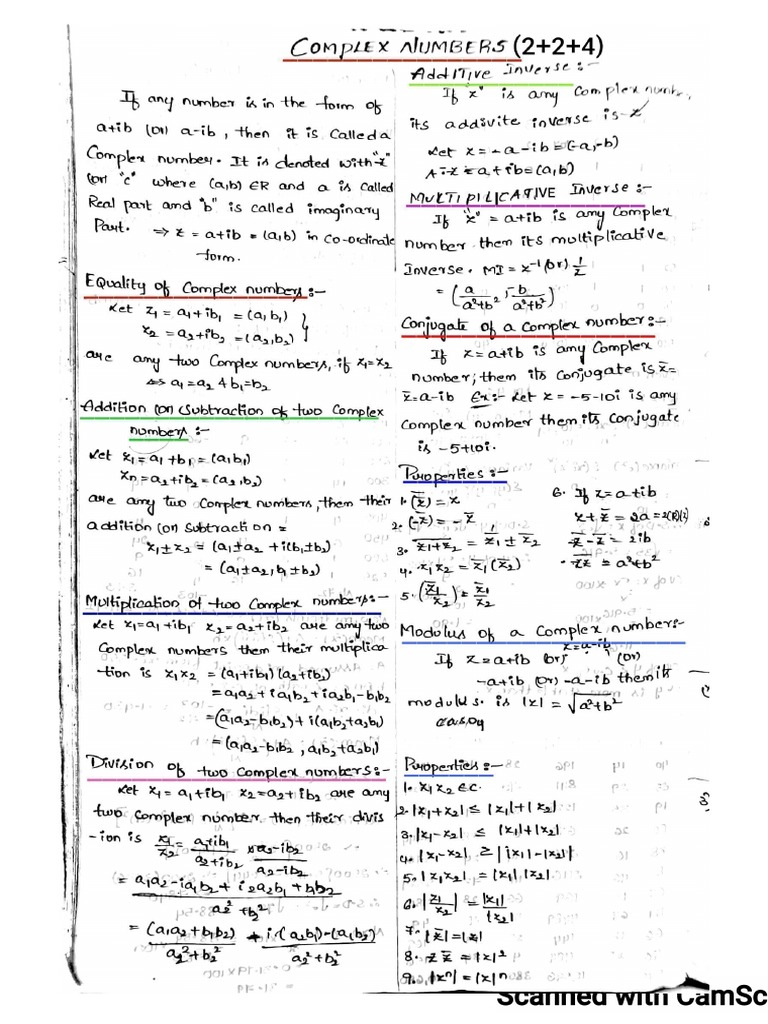 COMPLEX NUMBERS (2+2+4)
If any number is in the form of
a+ib (or) a-ib, then it is Called a
Complex number. It is denoted with "z"
(or) "c" where (a,b) ∈R and a is called
Real part and "b" is called imaginary
Part. ⇒ z = a+ib = (a,b) in Co-ordinate
form.
Equality of Complex numbers:-
Let z₁ = a₁+ib₁ = (a₁b₁)
z₂ = a₂+ib₂ = (a₂,b₂)
are any two Complex numbers, if z₁=z₂
⇔ a₁=a₂ & b₁=b₂
Addition (or) Subtraction of two Complex
numbers:-
Let z₁=a₁+b₁ = (a₁b₁)
zn=a₂+ib₂ = (a₂,b₂)
are any two Complex numbers, them their
addition (or) subtraction =
z₁±z₂ = (a₁±a₂ + i(b₁±b₂)
= (a₁±a₂, b₁±b₂)
Multiplication of two Complex numbers:-
Let z₁=a₁+ib₁ z₂=a₂+ib₂ are any two
Complex numbers them their multiplica
tion is z₁z₂ = (a₁+ib₁)(a₂+ib₂)
= a₁a₂+ia₁b₂+ia₂b₁-b₁b₂
=(a₁a₂-b₁b₂)+i(a₁b₂+a₂b₁)
= (a₁a₂-b₁b₂, a₁b₂+a₂b₁)
Division of two Complex numbers:-
Let z₁ = a₁+ib₁ z₂=a₂+ib₂ are any
two complex number then their divis
-ion is z₁/z₂ = a₁+ib₁/a₂+ib₂ × a₂-ib₂/a₂-ib₂
= a₁a₂-ia₁b₂+i₂a₂b₁+b₁b₂/a₂²+b₂²
= (a₁a₂+b₁b₂)/a₂²+b₂² + i(a₂b₁)-(a₁b₂)/a₂²+b₂²
Additive Inverse:-
If "z" is any Complex
its addivite inverse is -z
Let z = -a-ib = (-a,-b)
a+ib=(a,b)
MULTIPILICATIVE Inverse:-
If "z" = a+ib is any Complex
number them its multiplicative
Inverse. MI = z⁻¹ (or) 1/z
= (a/a²+b², -b/a²+b²)
Conjugate of a Complex number:-
If z=a+ib is any Complex
number; them its conjugate is z̄=
z̄=a-ib Ex:- Let z = -5-10i is any
complex number them its Conjugate
is -5+10i.
Properties:-
1. (z̄) = z
2. (-z̄) = -z̄
3. z̄₁+z̄₂ = z̄₁ ± z̄₂
4. z₁z₂ = z̄₁(z̄₂)
5. (z̄₁/z₂) = z̄₁/z₂
6. If z=a+ib
z+z̄ = 2a
z-z̄ = 2ib
zz̄ = a²+b²
Modulus of a Complex number:-
If z=a+ib (or) z=a-ib (or)
-a+ib (or) -a-ib them its
modulus. is |z| = √a²+b²
Properties:-
1. z₁z₂ ∈ c.
2. |z₁+z₂| ≤ |z₁|+|z₂|
3. |z₁-z₂| ≤ |z₁|+|z₂|
4. |z₁-z₂| ≥ ||z₁|-|z₂||
5. |z₁z₂| = |z₁||z₂|
6. |z₁/z₂| = |z₁|/|z₂|
7. |z̄|=|z|
8. zz̄ = |z|²
9. |zⁿ| = |z|ⁿ
Scanned with CamSc